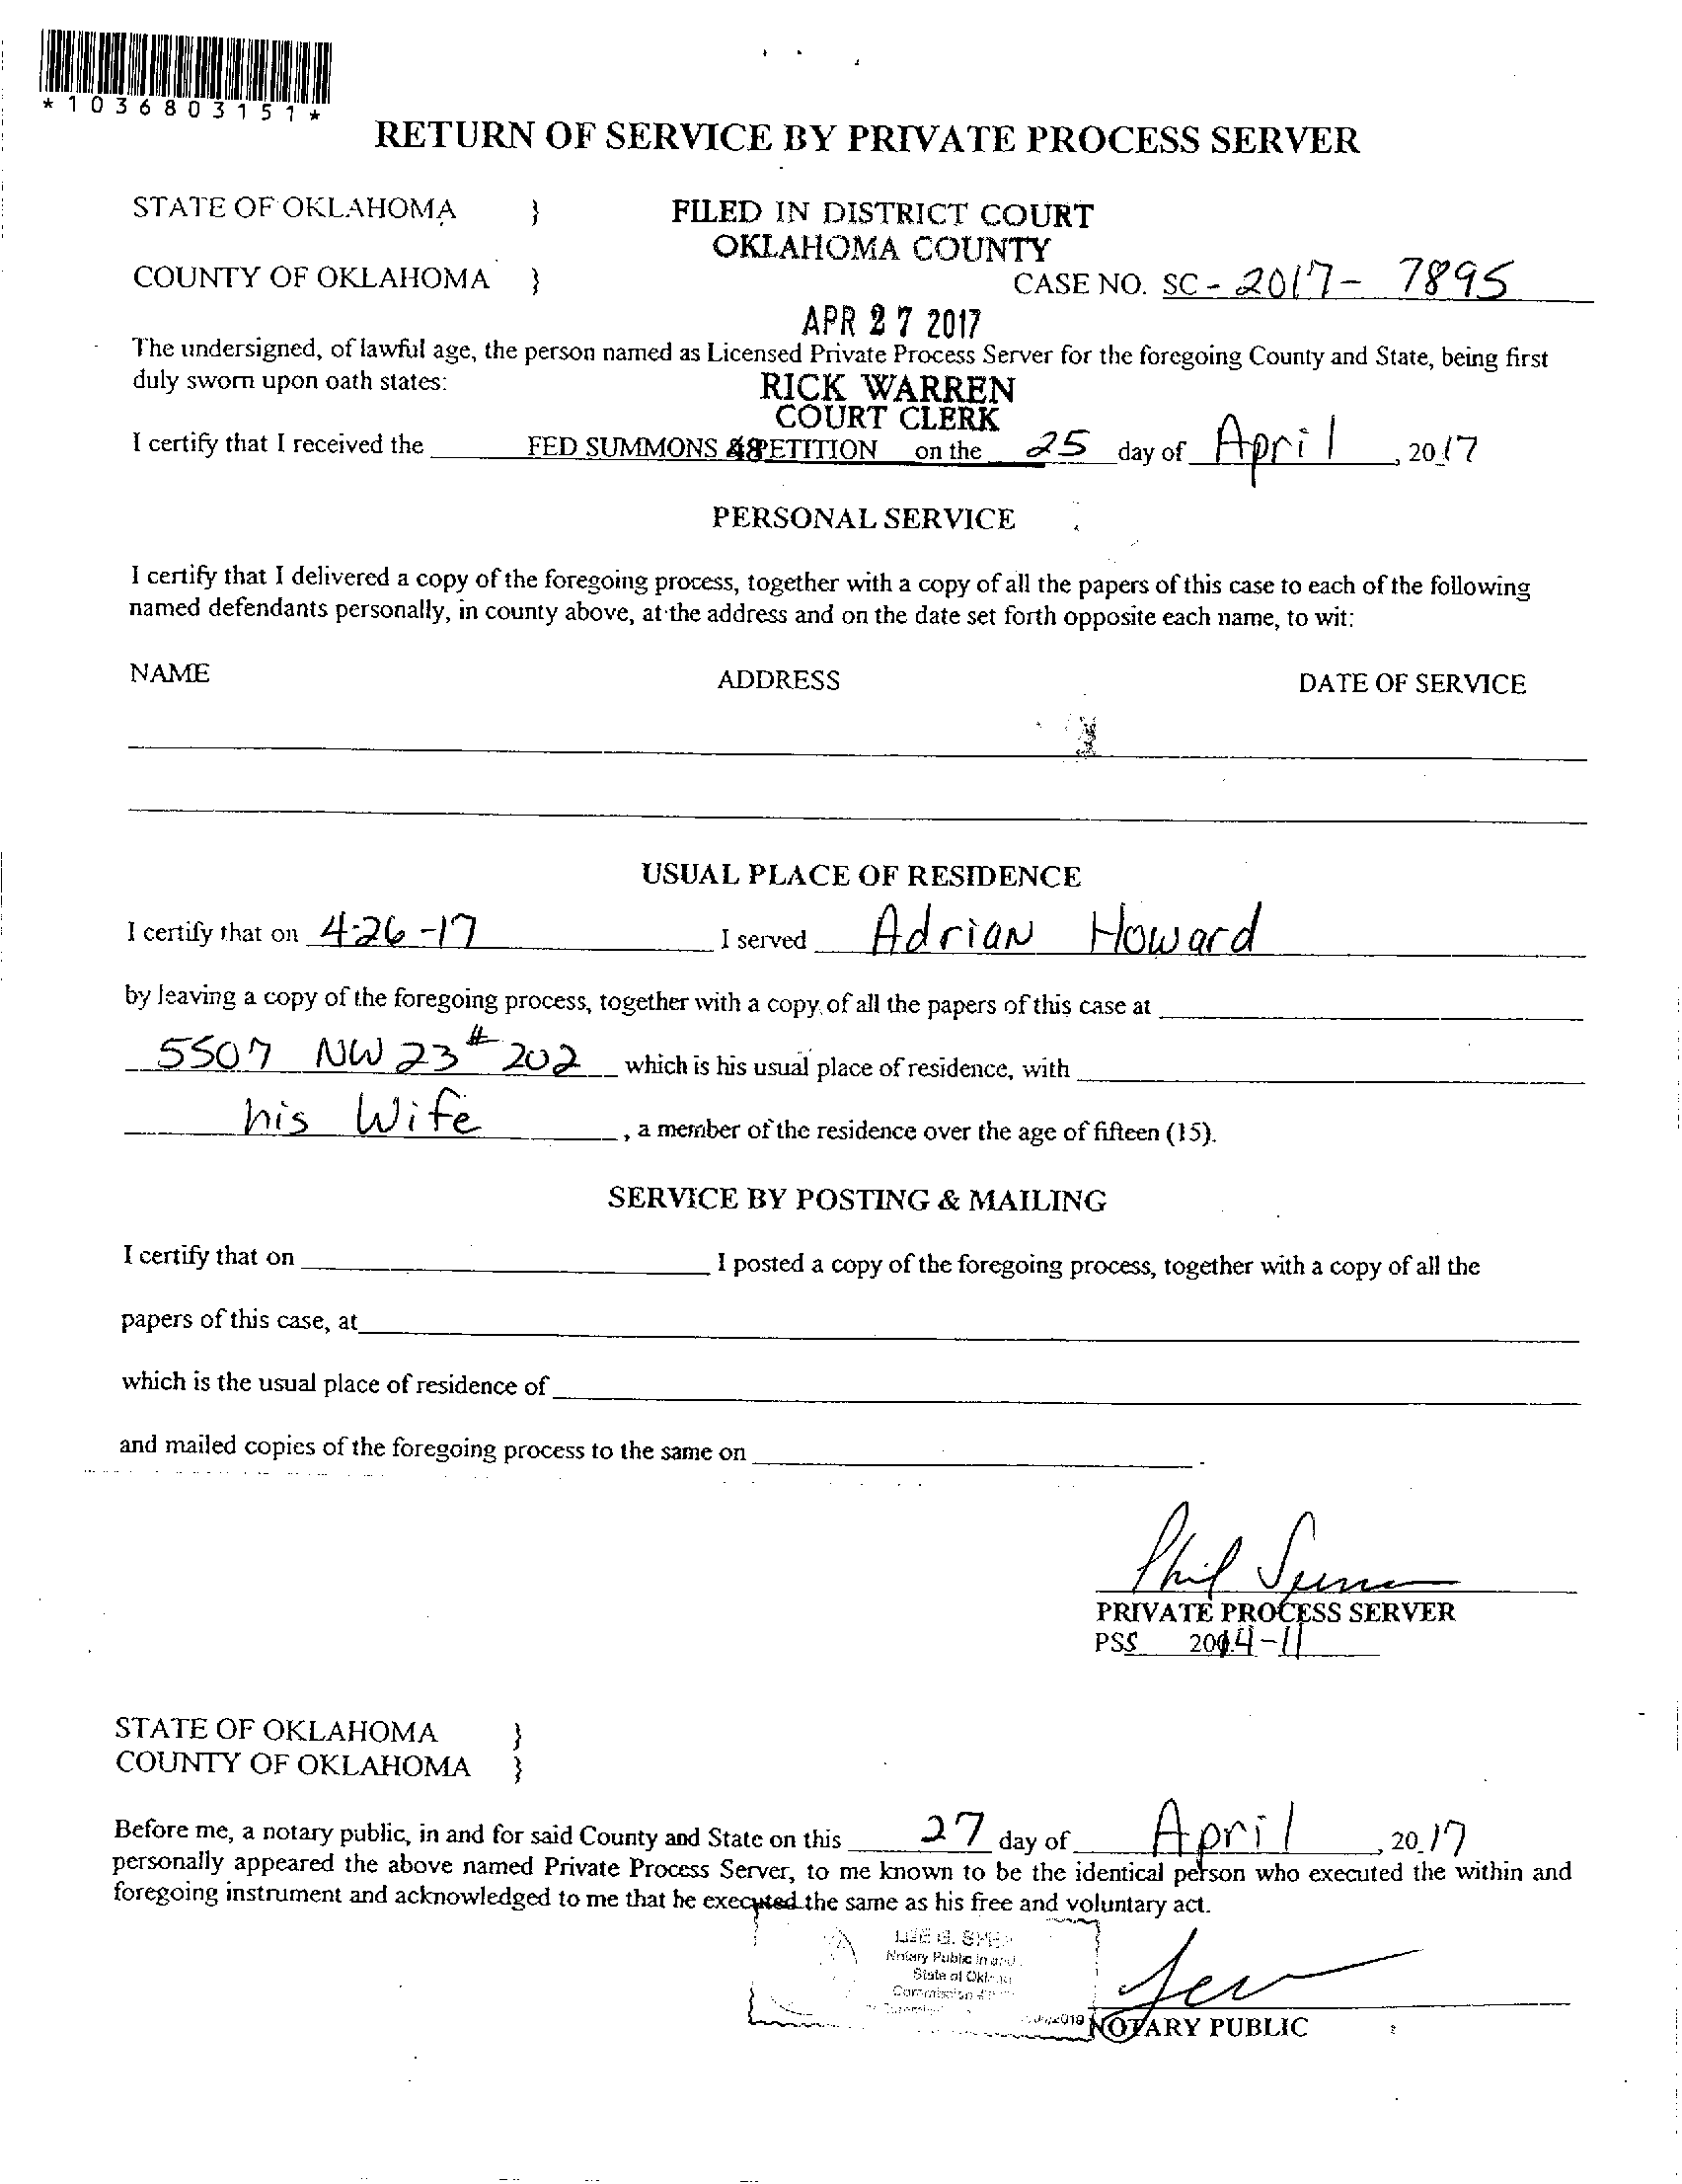 *1036803151*
RETURN OF SERVICE BY PRIVATE PROCESS SERVER
STATE OF OKLAHOMA }
FILED IN DISTRICT COURT
OKLAHOMA COUNTY
COUNTY OF OKLAHOMA }
CASE NO. SC - 2017 - 7895
APR 27 2017
The undersigned, of lawful age, the person named as Licensed Private Process Server for the foregoing County and State, being first
duly sworn upon oath states:
RICK WARREN
COURT CLERK
I certify that I received the FED SUMMONS & PETITION on the 25 day of April, 2017
PERSONAL SERVICE
I certify that I delivered a copy of the foregoing process, together with a copy of all the papers of this case to each of the following
named defendants personally, in county above, at the address and on the date set forth opposite each name, to wit:
NAME ADDRESS DATE OF SERVICE
USUAL PLACE OF RESIDENCE
I certify that on 4-26-17 I served Adrian Howard
by leaving a copy of the foregoing process, together with a copy of all the papers of this case at
5507 NW 23 # 202 which is his usual place of residence, with
his Wife, a member of the residence over the age of fifteen (15).
SERVICE BY POSTING & MAILING
I certify that on I posted a copy of the foregoing process, together with a copy of all the
papers of this case, at
which is the usual place of residence of
and mailed copies of the foregoing process to the same on .
Phil
PRIVATE PROCESS SERVER
PSS 2014-11
STATE OF OKLAHOMA }
COUNTY OF OKLAHOMA }
Before me, a notary public, in and for said County and State on this 27 day of April, 2017
personally appeared the above named Private Process Server, to me known to be the identical person who executed the within and
foregoing instrument and acknowledged to me that he executed the same as his free and voluntary act.
Notary Public in and
State of
Commission
NOTARY PUBLIC